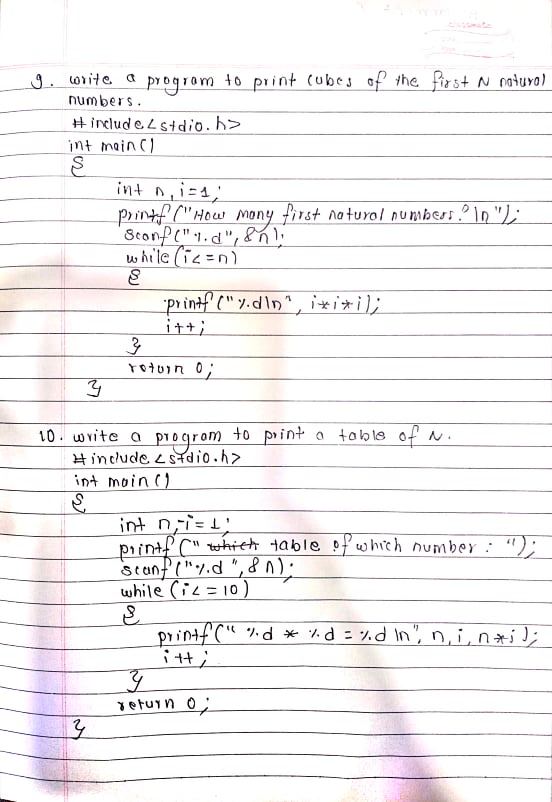 classmate
9. write a program to print cubes of the first N natural
numbers.
#include<stdio.h>
int main()
{
int n,i=1;
printf("How many first natural numbers?\n");
scanf("%d",&n);
while(i<=n)
{
printf("%d\n", i*i*i);
i++;
}
return 0;
}
10. write a program to print a table of N.
#include<stdio.h>
int main()
{
int n,i=1;
printf("which table of which number: ");
scanf("%d",&n);
while(i<=10)
{
printf("%d * %d = %d\n", n, i, n*i);
i++;
}
return 0;
}